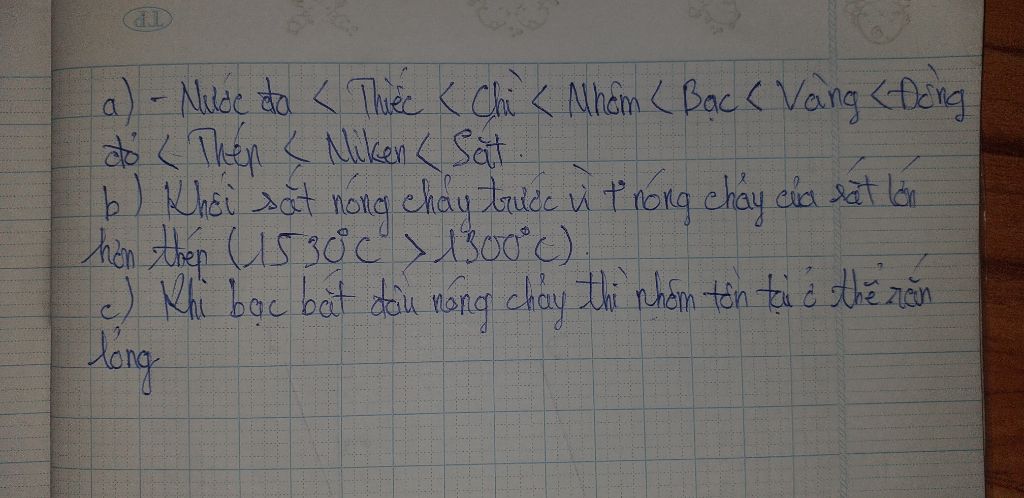 TP
a) - Nước đá < Thiếc < Chì < Nhôm < Bạc < Vàng < Đồng
đỏ < Thép < Niken < Sắt.
b) Khối sắt nóng chảy trước vì t° nóng chảy của sắt lớn
hơn thép (1530°C > 1300°C).
c) Khi bạc bắt đầu nóng chảy thì nhôm tồn tại ở thể rắn
lỏng